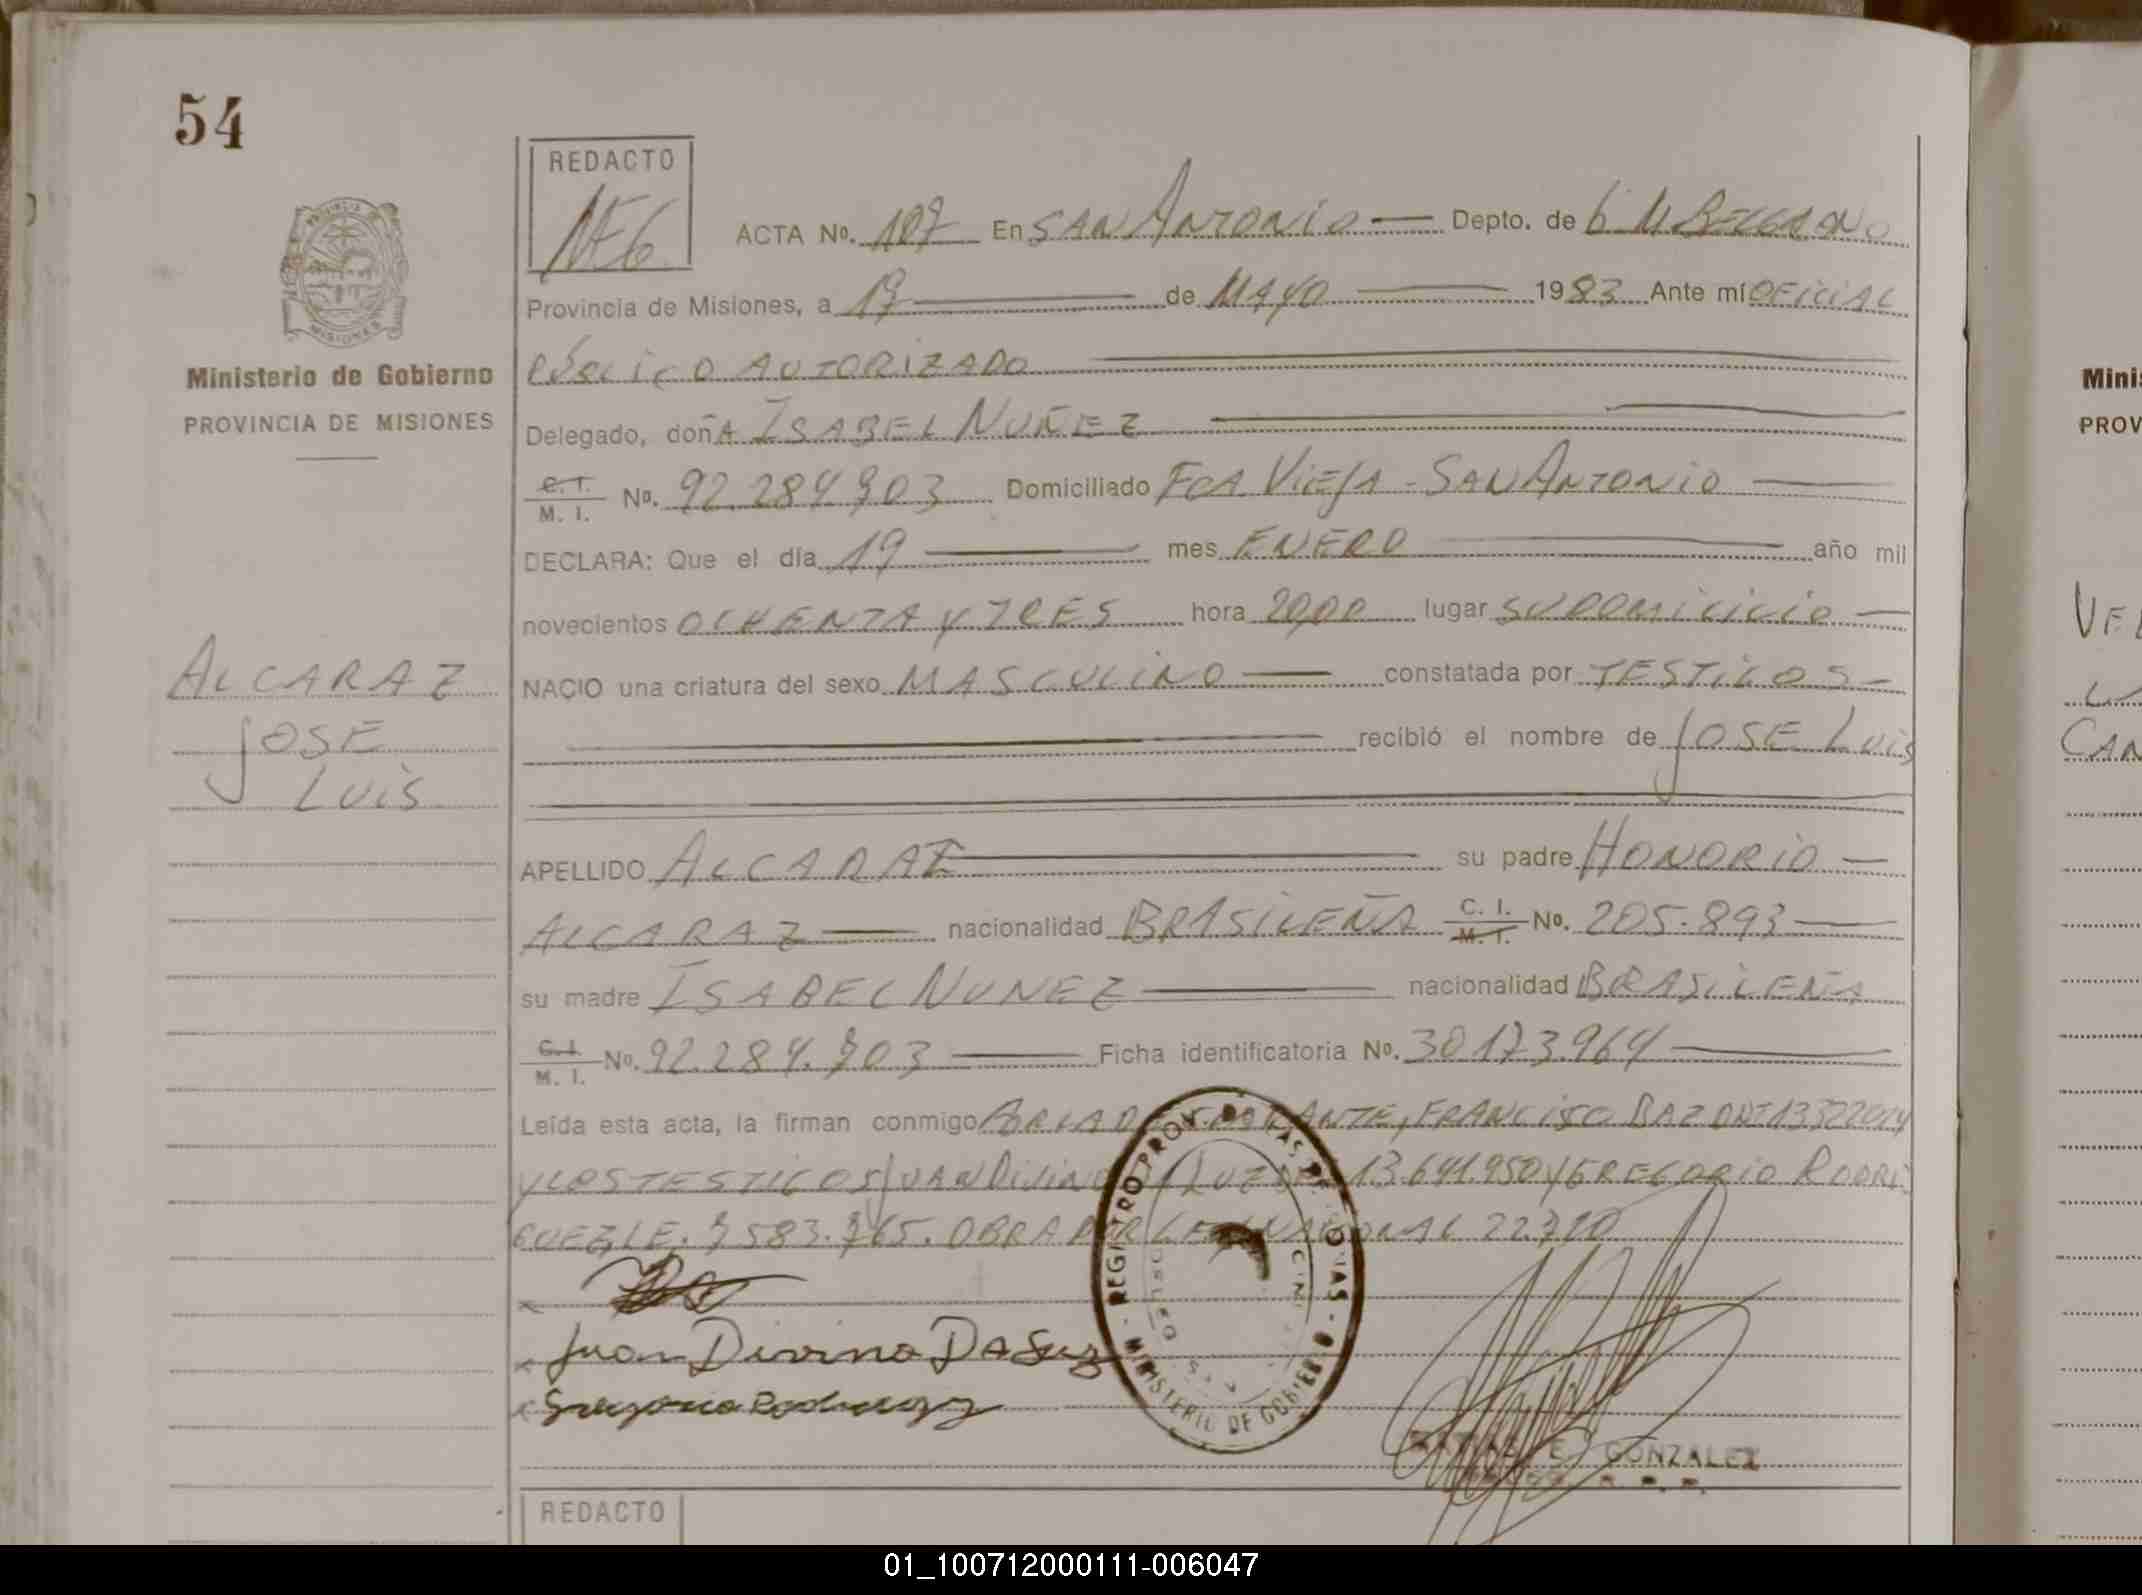 54
REDACTO
ACTA No. 107 En SAN ANTONIO Depto. de G. M BELGRANO
Provincia de Misiones, a 17 de MAYO 1983 Ante mí OFICIAL
PÚBLICO AUTORIZADO
Ministerio de Gobierno
PROVINCIA DE MISIONES
Delegado, doñA ISABEL NUÑEZ
C. I. M. I. No. 92.284.703 Domiciliado FCA. VIEJA - SAN ANTONIO
DECLARA: Que el día 19 mes ENERO año mil
novecientos OCHENTA Y TRES hora 20,00 lugar SU DOMICILIO
ALCARAZ
JOSE
LUIS
NACIO una criatura del sexo MASCULINO constatada por TESTIGOS
recibió el nombre de JOSE LUIS
APELLIDO ALCARAZ su padre HONORIO
ALCARAZ nacionalidad BRASILEÑA C. I. M. I. No. 205.893
su madre ISABEL NUNEZ nacionalidad BRASILEÑA
C. I. M. I. No. 92.284.703 Ficha identificatoria No. 30.173.964
Leída esta acta, la firman conmigo FRANCISCO BAZ DNI 13322014
Y LOS TESTIGOS JUAN DIVINO LUZ 13.641.950 Y GREGORIO RODRI
GUEZ LE. 7583.765. OBRA POR LEY NACIONAL 22.710
Juan Divino Da Luz
Gregorio Rodriguez
REGISTRO PROV. DE LAS PERSONAS
MINISTERIO DE GOBIERNO
E. GONZALEZ
REDACTO
Minis
PROV
CAN
01_100712000111-006047